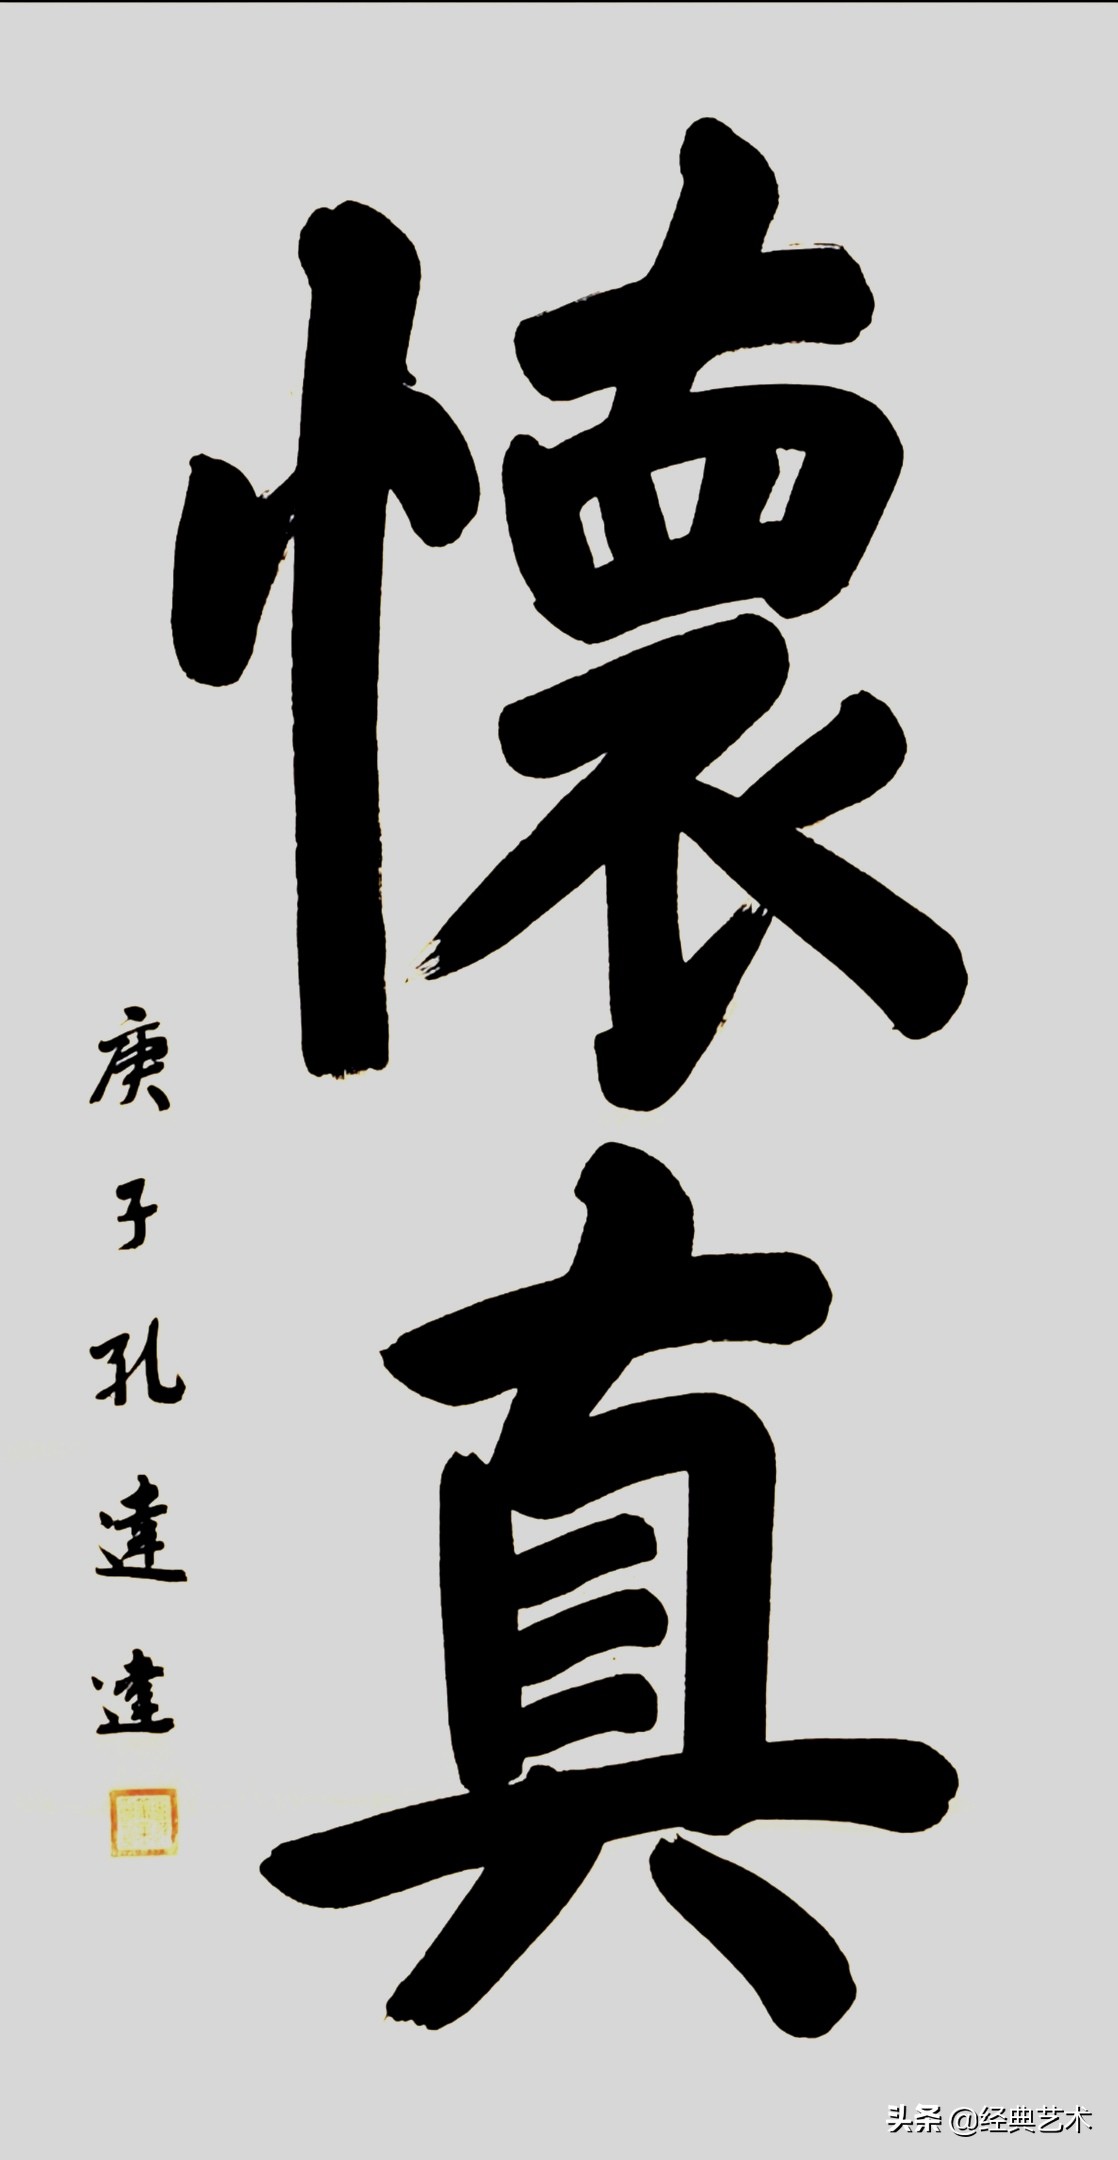 懷真
庚子孔達達
头条 @经典艺术